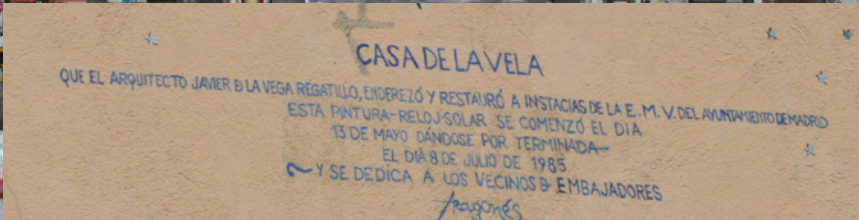 CASA DE LA VELA
QUE EL ARQUITECTO JAVIER D LA VEGA REGATILLO, ENDEREZÓ Y RESTAURÓ A INSTACIAS DE LA E. M. V. DEL AYUNTAMIENTO DE MADRID
ESTA PINTURA-RELOJ-SOLAR SE COMENZÓ EL DIA
13 DE MAYO DÁNDOSE POR TERMINADA
EL DIA 8 DE JULIO DE 1985
Y SE DEDICA A LOS VECINOS D EMBAJADORES
Aragonés